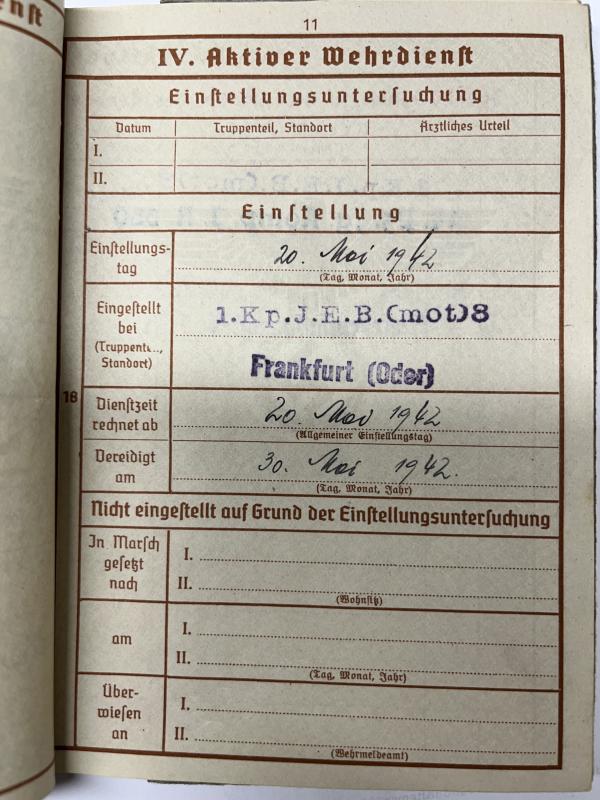 11
IV. Aktiver Wehrdienst
Einstellungsuntersuchung
Datum Truppenteil, Standort Ärztliches Urteil
I.
II.
Einstellung
Einstellungs-
tag
20. Mai 1942
(Tag, Monat, Jahr)
Eingestellt
bei
(Truppent..,
Standort)
1.Kp.J.E.B.(mot)8
Frankfurt (Oder)
18
Dienstzeit
rechnet ab
20. Mai 1942
(Allgemeiner Einstellungstag)
Vereidigt
am
30. Mai 1942.
(Tag, Monat, Jahr)
Nicht eingestellt auf Grund der Einstellungsuntersuchung
In Marsch
gesetzt
nach
I.
II.
(Wohnsitz)
am
I.
II.
(Tag, Monat, Jahr)
Über-
wiesen
an
I.
II.
(Wehrmeldeamt)